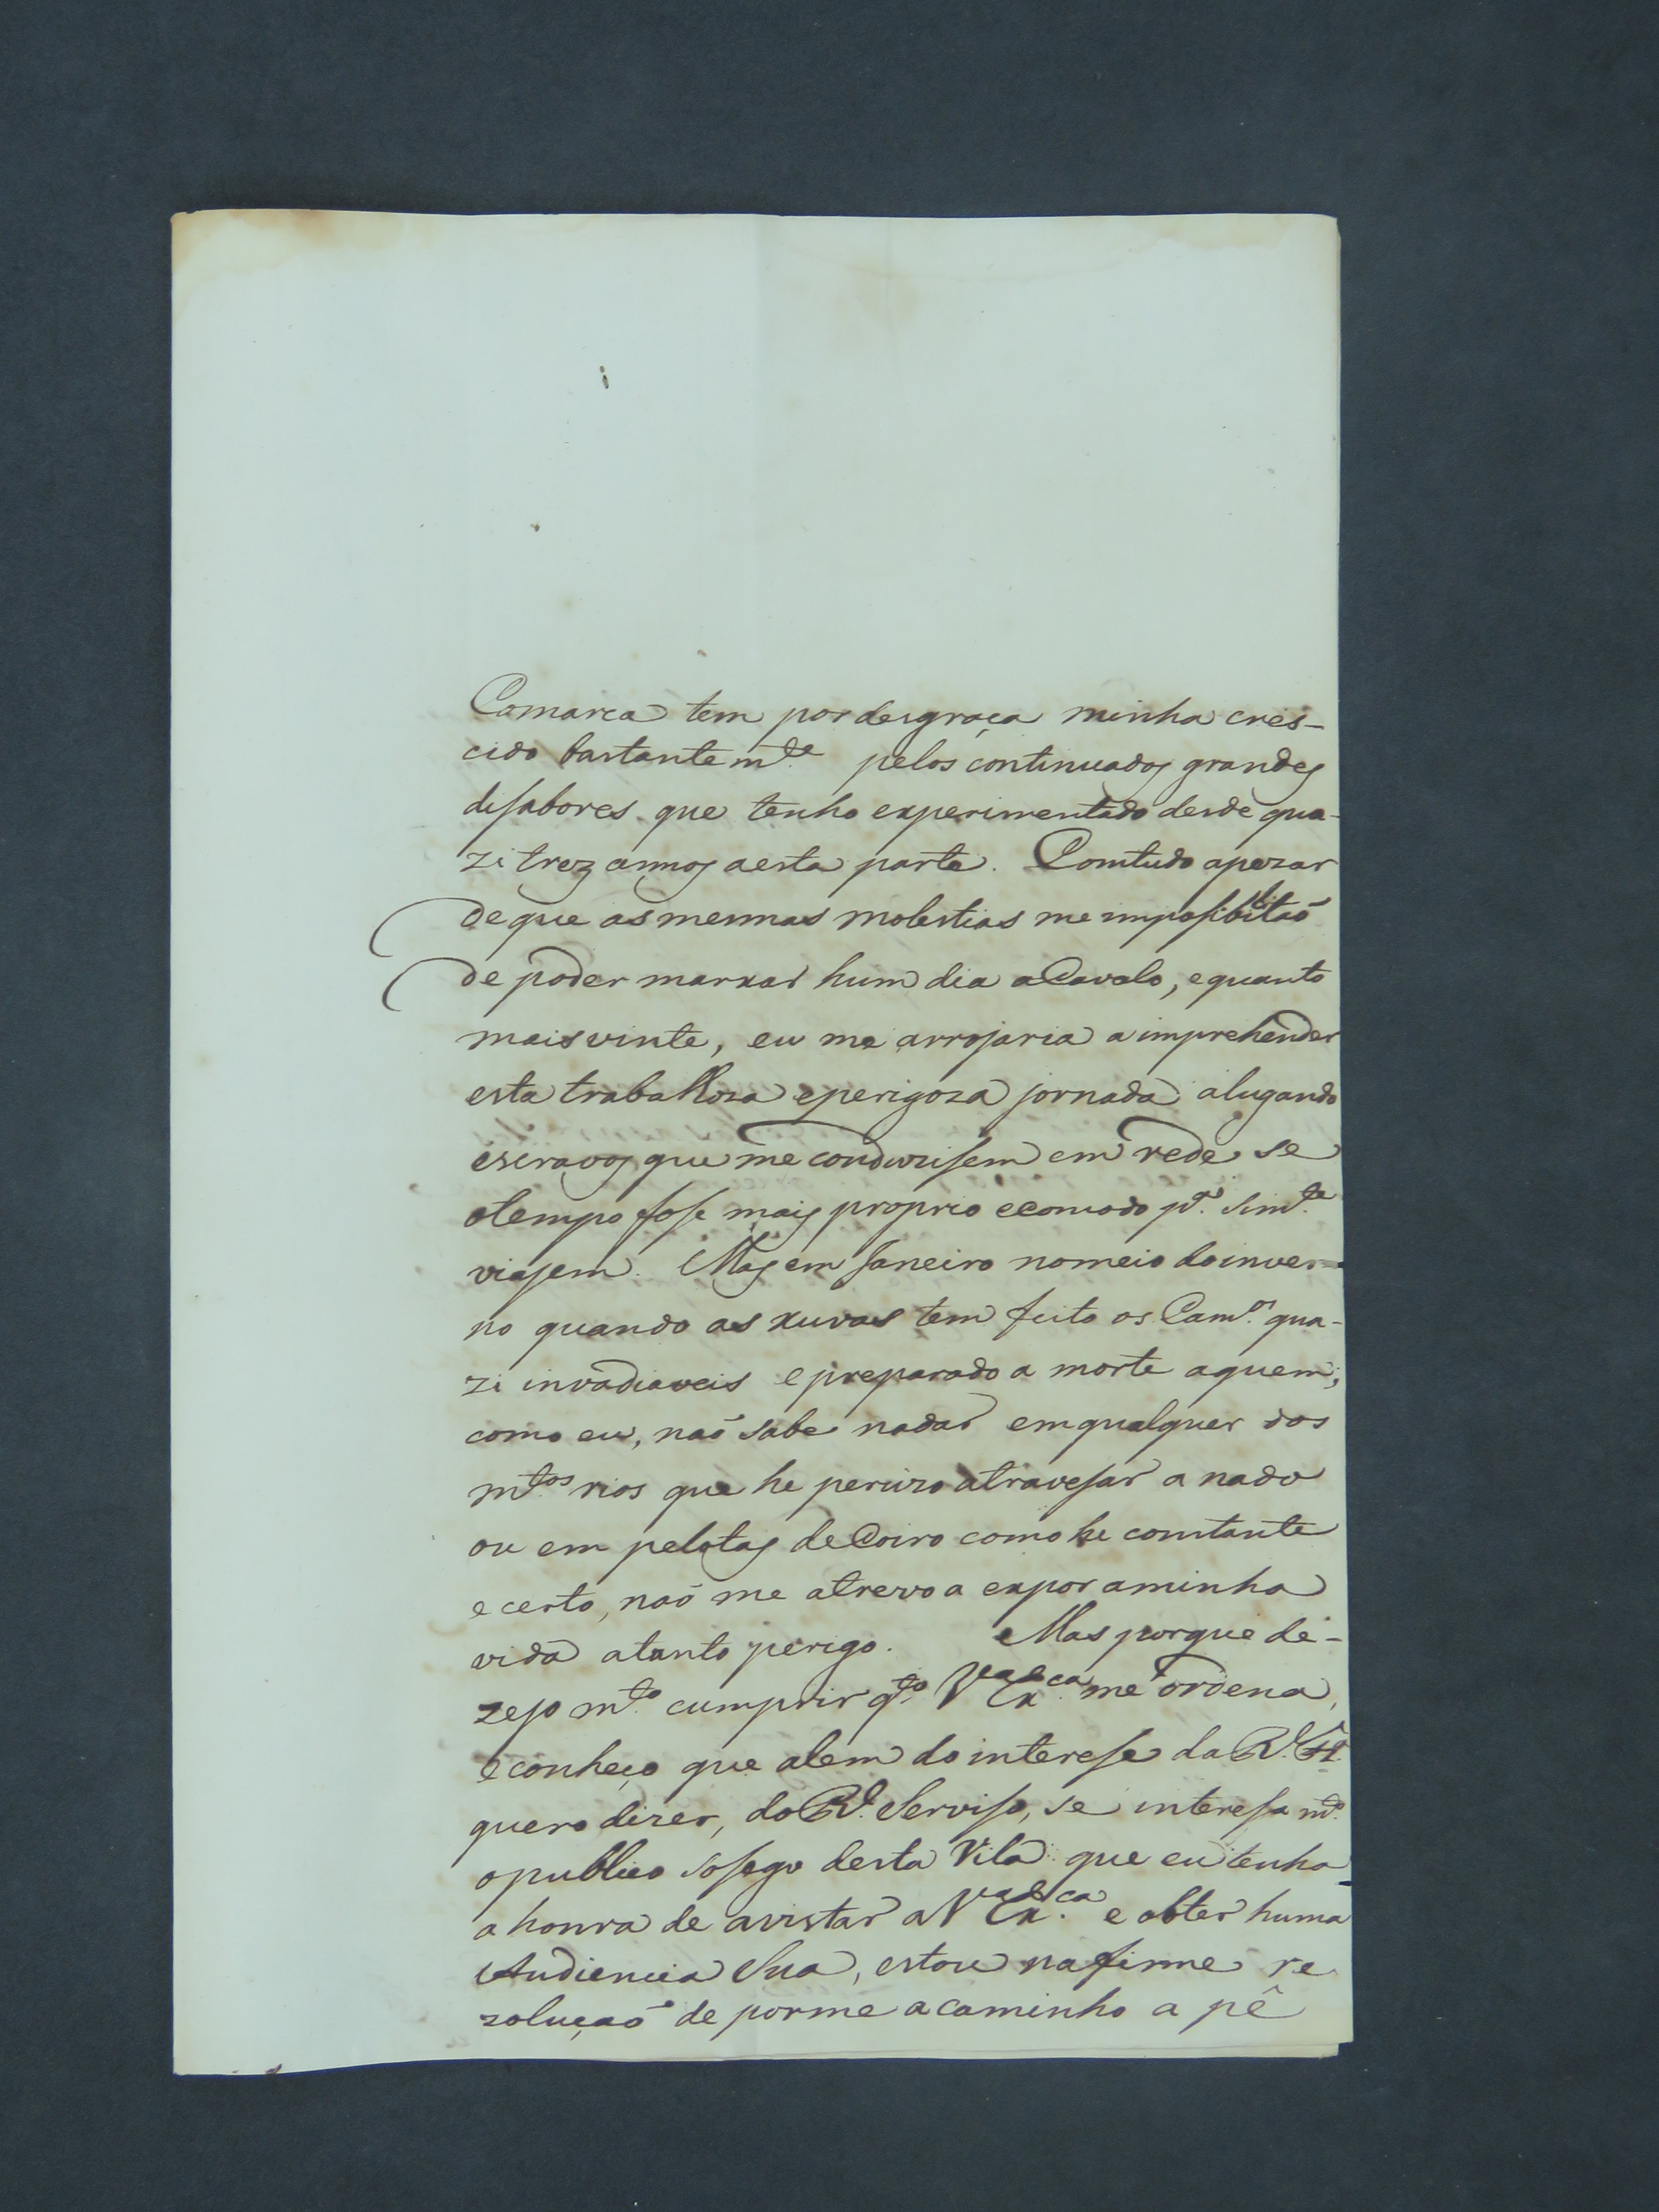 Comarca tem por desgraça minha cres-
cido bastantem.te pelos continuados grandes
disabores que tenho experimentado desde qua-
zi trez annos a esta parte. Comtudo apezar
de que as mesmas molestias me imposibilitaõ
de poder marxar hum dia a Cavalo, e quanto
mais vinte, eu me arrojaria a imprehender
esta trabalhoza e perigoza jornada alugando
escravos que me conduzisem em rede se
o tempo fose mais proprio e comodo p.a sim.e
viajem. Mas em Janeiro no meio do inver-
no quando as xuvas tem feito os Cam.os qua-
zi invadiaveis e preparado a morte a quem,
como eu, naõ sabe nadar em qualquer dos
m.tos rios que he percizo atravesar a nado
ou em pelotas de Coiro como he constante
e certo, naõ me atrevo a expor a minha
vida a tanto perigo. Mas porque de-
zejo m.to cumprir q.to V.a Ex.ca me ordena,
e conheço que alem do interese da R.l
quero dizer, do R.l Serviso, se interesa m.to
o publico sosego desta Vila que eu tenha
a honra de avistar a V.a Ex.ca e obter huma
Audiencia Sua, estou na firme re
zoluçaõ de porme a caminho a pê